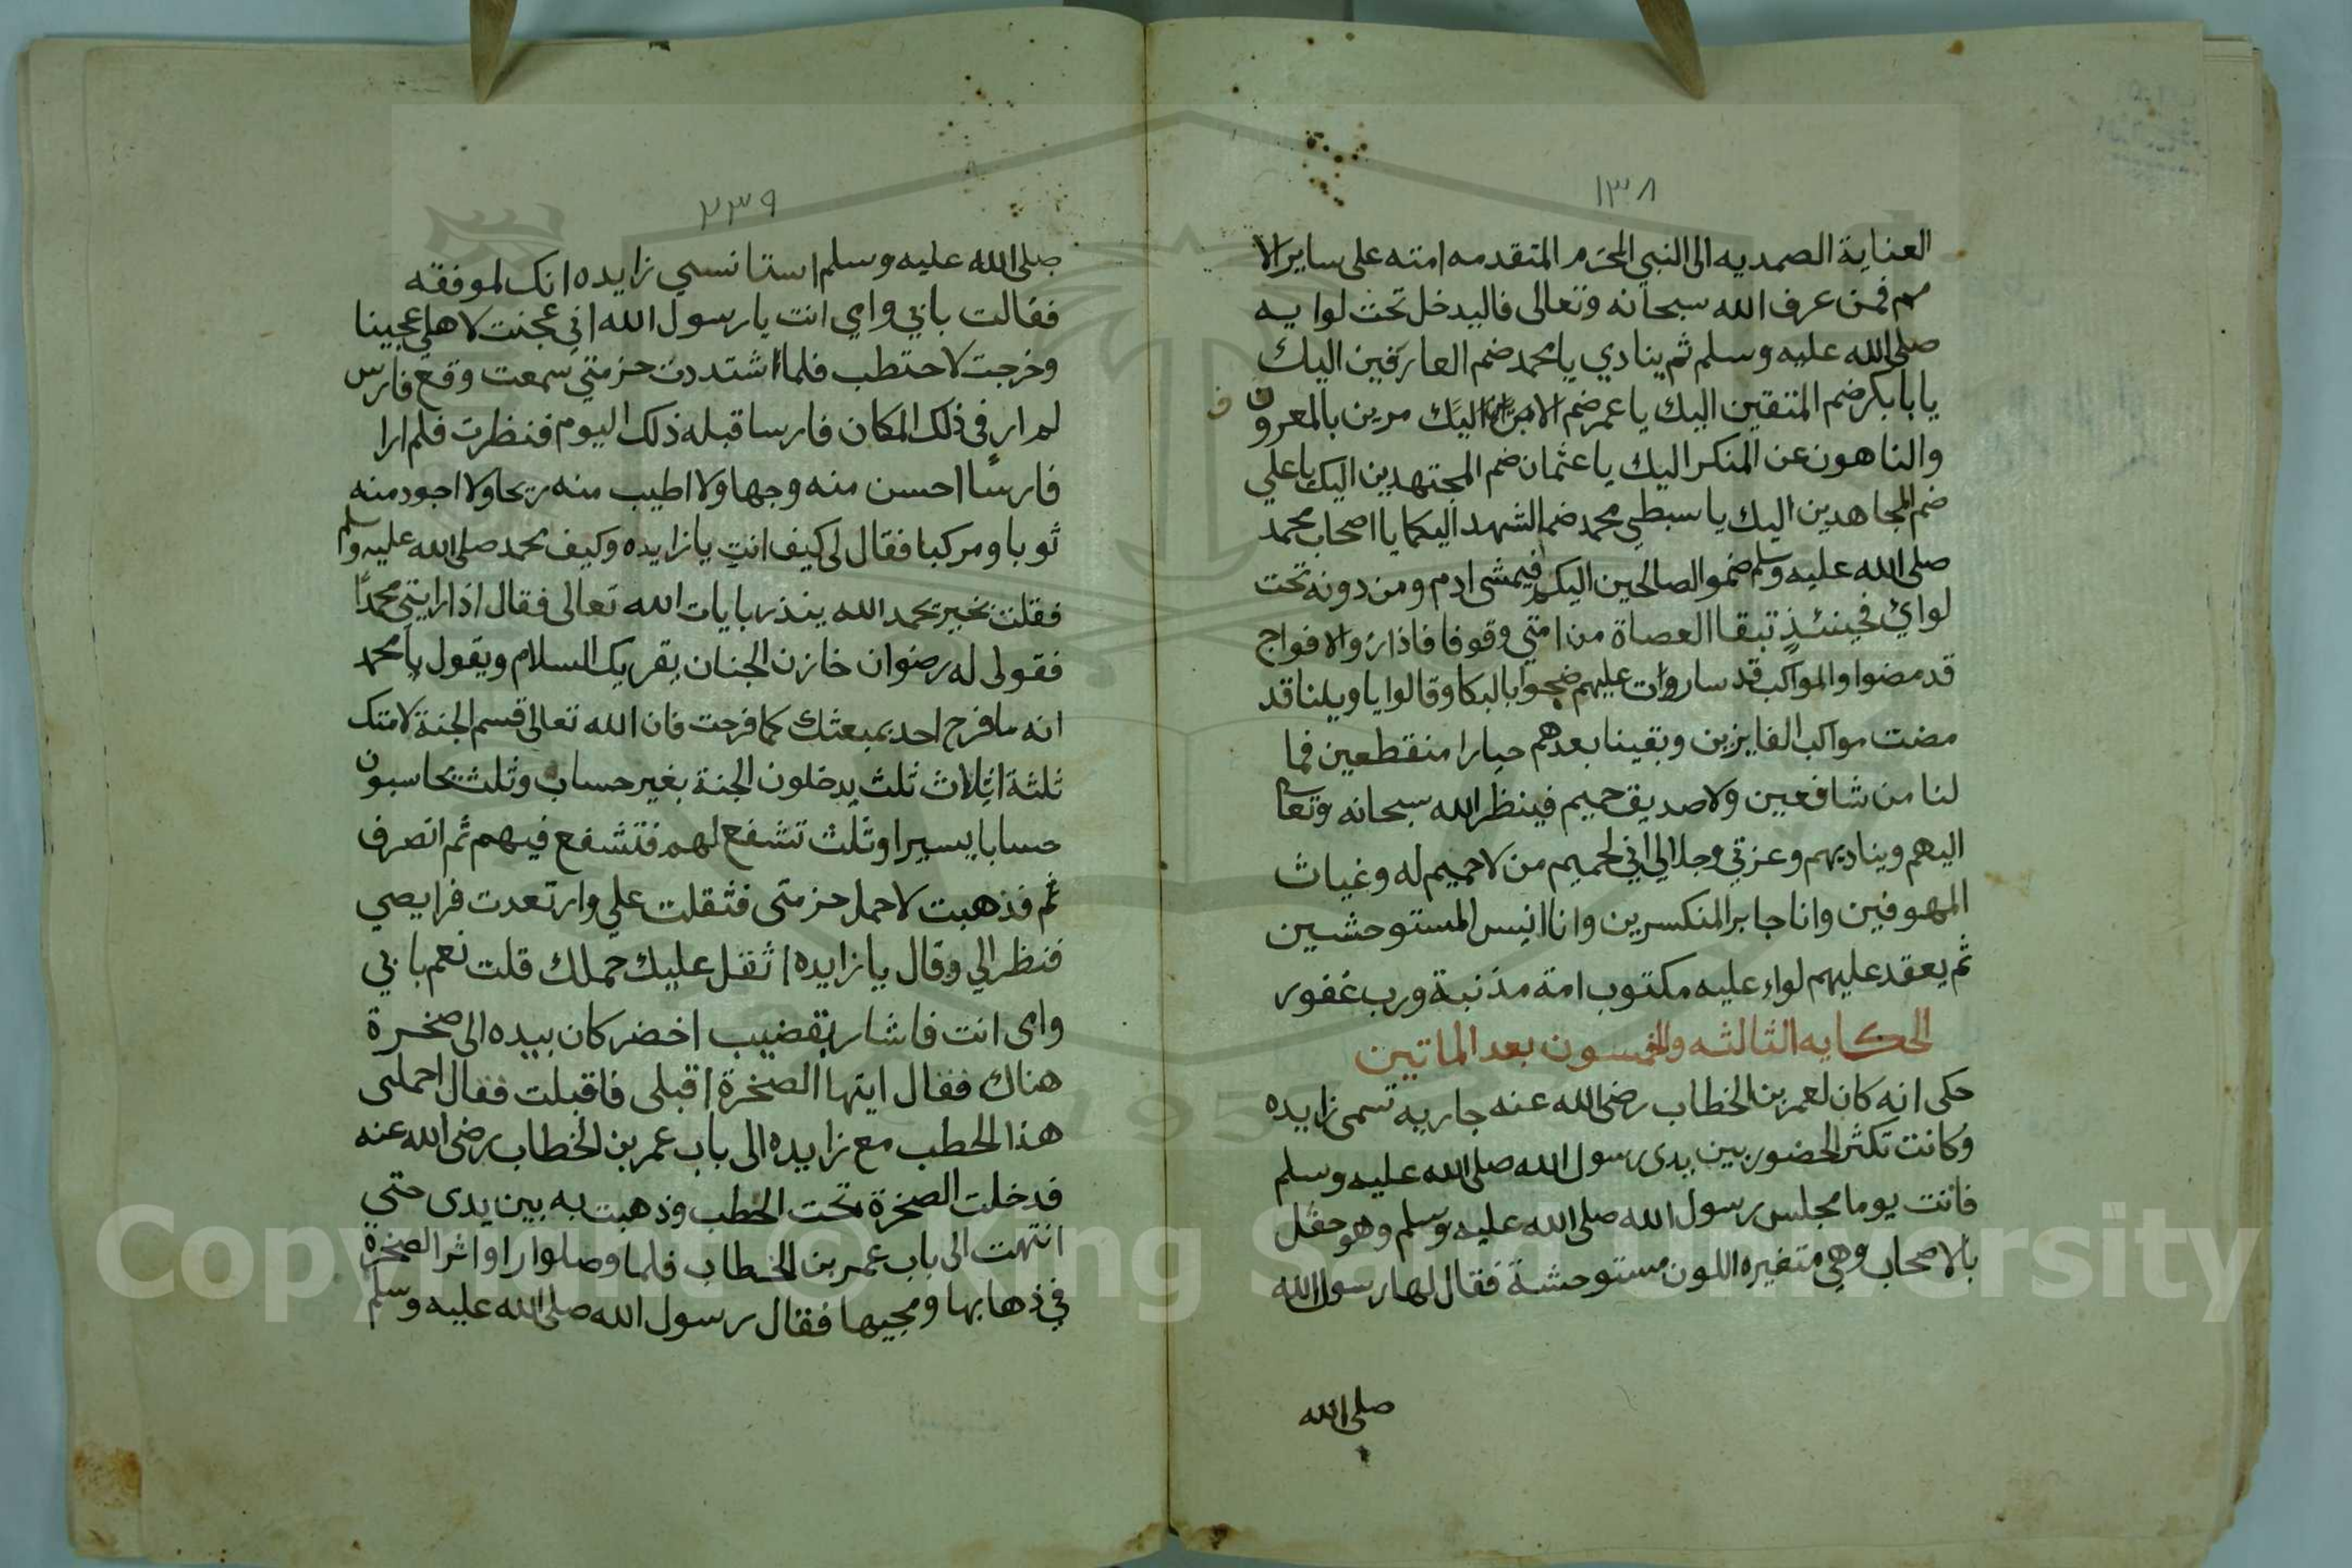 ١٣٨
العناية الصمديه الى النبي المحترم المتقدمه امته على ساير الا
مم فمن عرف الله سبحانه وتعالى فاليدخل تحث لوايه
صلى الله عليه وسلم ثم ينادي يا محمد ضم العارفين اليك
يا بابكر ضم المتقين اليك يا عمر ضم الامرين اليك مرين بالمعروف
والناهون عن المنكر اليك يا عثمان ضم المجتهدين اليك يا علي
ضم المجاهدين اليك يا سبطي محمد ضما الشهدا اليكما يا اصحاب محمد
صلى الله عليه وسلم ضموا الصالحين اليكم فيمشى ادم ومن دونه تحت
لواي فحينئذٍ تبقا العصاة من امتي وقوفا فاذا رأوا الافواج
قد مضوا والمواكب قد سارت عليهم ضجوا بالبكا وقالوا يا ويلنا قد
مضت مواكب الفايزين وبقينا بعدهم حيارا منقطعين فما
لنا من شافعين ولا صديق حميم فينظر الله سبحانه وتعالى
اليهم ويناديهم وعزتي وجلالي اني لحميم من لا حميم له وغياث
المهوفين وانا جابر المنكسرين وانا انيس المستوحشين
ثم يعقد عليهم لواء عليه مكتوب امة مذنبة ورب غفور
الحكايه الثالثه والخمسون بعد الماتين
حكى انه كان لعمر بن الخطاب رضى الله عنه جاريه تسمى زايده
وكانت تكثر الحضور بين يدى رسول الله صلى الله عليه وسلم
فاتت يوما مجلس رسول الله صلى الله عليه وسلم وهو حفل
بالاصحاب وهي متغيره اللون مستوحشة فقال لها رسول الله
صلى الله
٢٣٩
صلى الله عليه وسلم استانسي زايده انك لموفقه
فقالت بابي وامي انت يا رسول الله اني عجنت لاهلي عجينا
وخرجت لاحتطب فلما اشتددت حزمتي سمعت وقع فارس
لم ار في ذلك المكان فارسا قبله ذلك اليوم فنظرت فلم ارا
فارسًا احسن منه وجها ولا اطيب منه ريحا ولا اجود منه
ثوبا ومركبا فقال لى كيف انتِ يا زايده وكيف محمد صلى الله عليه وسلم
فقلت بخير بحمد الله ينذر بايات الله تعالى فقال اذا رايتي محمدًا
فقولى له رضوان خازن الجنان يقريك السلام ويقول يا محمد
انه ما فرح احد بمبعثك كما فرحت فان الله تعالى قسم الجنة لامتك
ثلثة اثلاث ثلث يدخلون الجنة بغير حساب وثلث يحاسبون
حسابا يسيرا وثلث تشفع لهم فتشفع فيهم ثم انصرف
ثم فذهبت لاحمل حزمتى فثقلت علي وارتعدت فرايصي
فنظر الي وقال يا زايده اثقل عليك حملك قلت نعم بابي
وامى انت فاشار بقضيب اخضر كان بيده الى صخرة
هناك فقال ايتها الصخرة اقبلى فاقبلت فقال احملى
هذا الحطب مع زايده الى باب عمر بن الخطاب رضى الله عنه
فدخلت الصخرة تحت الحطب وذهبت به بين يدى حتى
انتهت الى باب عمر بن الخطاب فلما وصلوا راوا اثر الصخرة
في ذهابها ومجيها فقال رسول الله صلى الله عليه وسلم
Copyright © King Saud University